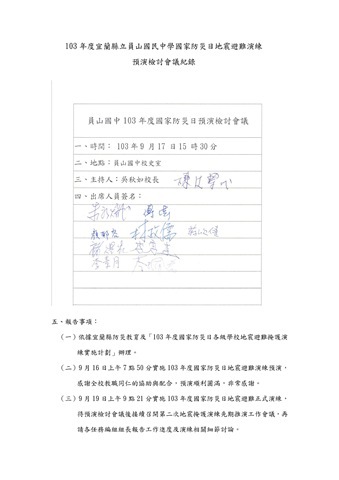 103 年度宜蘭縣立員山國民中學國家防災日地震避難演練
預演檢討會議紀錄
員山國中 103 年度國家防災日預演檢討會議
一、時間： 103 年 9 月 17 日 15 時 30 分
二、地點：員山國中校史室
三、主持人：吳秋如校長
四、出席人員簽名：
五、報告事項：
（一）依據宜蘭縣防災教育及「103 年度國家防災日各級學校地震避難掩護演
練實施計劃」辦理。
（二）9 月 16 日上午 7 點 50 分實施 103 年度國家防災日地震避難演練預演，
感謝全校教職同仁的協助與配合，預演順利圓滿，非常感謝。
（三）9 月 19 日上午 9 點 21 分實施 103 年度國家防災日地震避難正式演練，
待預演檢討會議後接續召開第二次地震掩護演練先期推演工作會議，再
請各任務編組組長報告工作進度及演練相關細節討論。